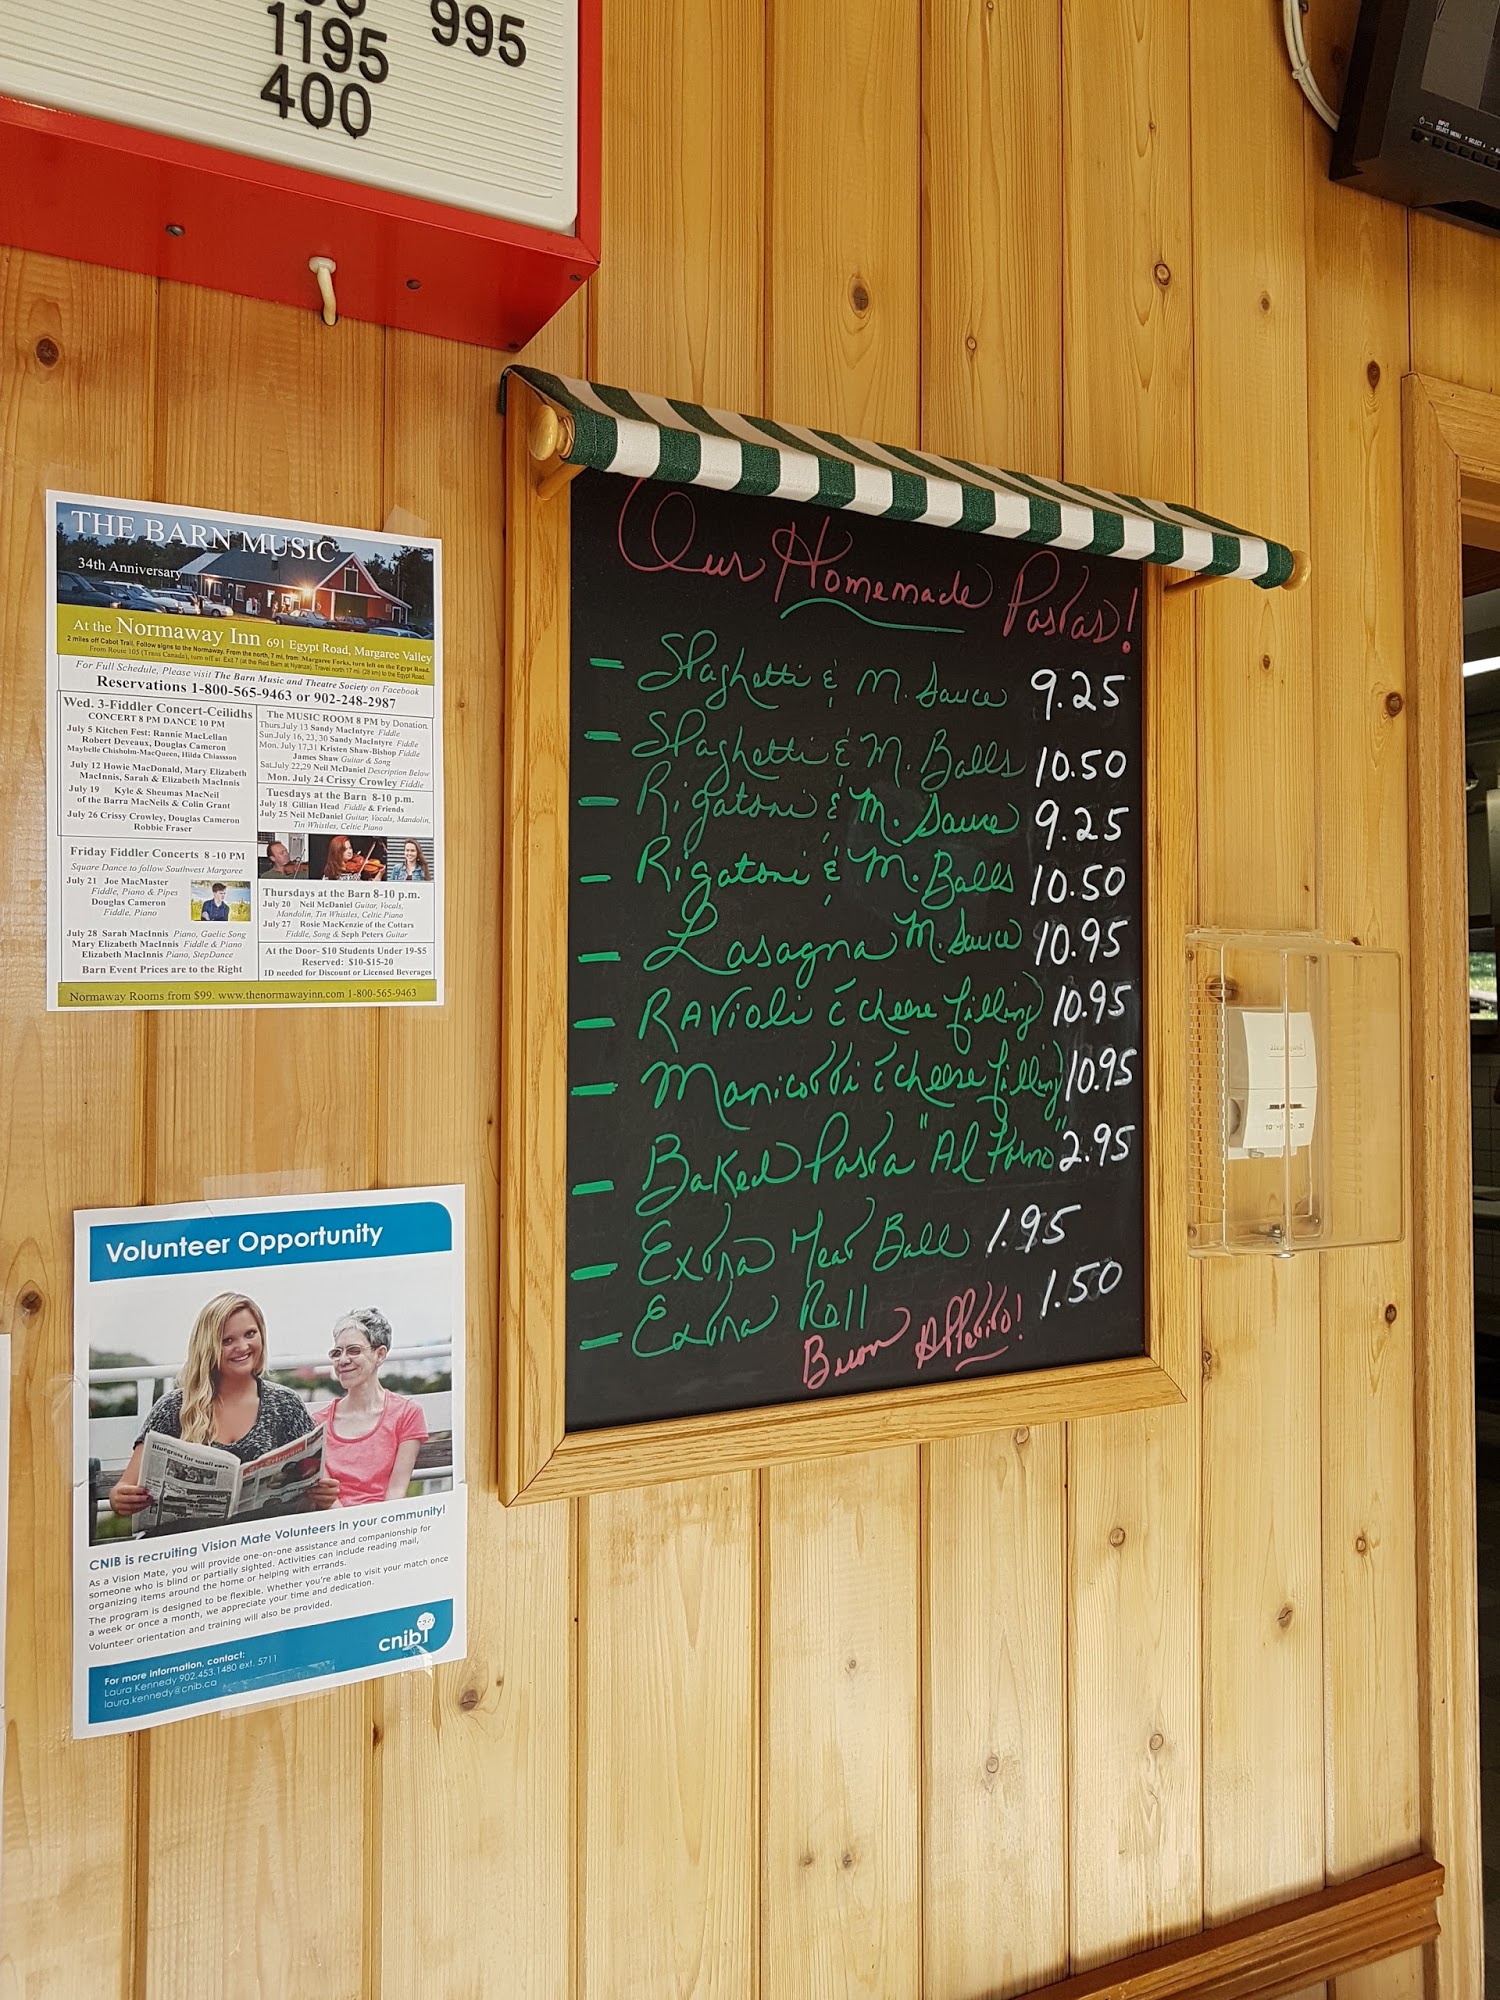 995
1195
400
INPUT
SELECT MENU
SELECT
THE BARN MUSIC
34th Anniversary
At the Normaway Inn 691 Egypt Road, Margaree Valley
2 miles off Cabot Trail. Follow signs to the Normaway. From the north, 7 mi. from Margaree Forks, turn left on the Egypt Road.
From Route 105 (Trans Canada), turn off at Exit 7 (at the Red Barn at Nyanza). Travel north 17 mi. (28 km) to the Egypt Road.
For Full Schedule, Please visit The Barn Music and Theatre Society on Facebook
Reservations 1-800-565-9463 or 902-248-2987
Wed. 3-Fiddler Concert-Ceilidhs
CONCERT 8 PM DANCE 10 PM
July 5 Kitchen Fest: Rannie MacLellan
Robert Deveaux, Douglas Cameron
Maybelle Chisholm-MacQueen, Hilda Chiassson
July 12 Howie MacDonald, Mary Elizabeth
MacInnis, Sarah & Elizabeth MacInnis
July 19 Kyle & Sheumas MacNeil
of the Barra MacNeils & Colin Grant
July 26 Crissy Crowley, Douglas Cameron
Robbie Fraser
Friday Fiddler Concerts 8 -10 PM
Square Dance to follow Southwest Margaree
July 21 Joe MacMaster
Fiddle, Piano & Pipes
Douglas Cameron
Fiddle, Piano
July 28 Sarah MacInnis Piano, Gaelic Song
Mary Elizabeth MacInnis Fiddle & Piano
Elizabeth MacInnis Piano, StepDance
Barn Event Prices are to the Right
The MUSIC ROOM 8 PM by Donation
Thurs.July 13 Sandy MacIntyre Fiddle
Sun.July 16, 23, 30 Sandy MacIntyre Fiddle
Mon. July 17,31 Kristen Shaw-Bishop Fiddle
James Shaw Guitar & Song
Sat.July 22,29 Neil McDaniel Description Below
Mon. July 24 Crissy Crowley Fiddle
Tuesdays at the Barn 8-10 p.m.
July 18 Gillian Head Fiddle & Friends
July 25 Neil McDaniel Guitar, Vocals, Mandolin,
Tin Whistles, Celtic Piano
Thursdays at the Barn 8-10 p.m.
July 20 Neil McDaniel Guitar, Vocals,
Mandolin, Tin Whistles, Celtic Piano
July 27 Rosie MacKenzie of the Cottars
Fiddle, Song & Seph Peters Guitar
At the Door- $10 Students Under 19-$5
Reserved: $10-$15-20
ID needed for Discount or Licensed Beverages
Normaway Rooms from $99. www.thenormawayinn.com 1-800-565-9463
Our Homemade Pastas!
Spaghetti & M. Sauce 9.25
Spaghetti & M. Balls 10.50
Rigatoni & M. Sauce 9.25
Rigatoni & M. Balls 10.50
Lasagna M. Sauce 10.95
Ravioli c̄ cheese filling 10.95
Manicotti c̄ cheese filling 10.95
Baked Pasta "Al Forno" 2.95
Extra Meat Ball 1.95
Extra Roll 1.50
Buon Appetito!
Volunteer Opportunity
Bluegrass for small ears
CNIB is recruiting Vision Mate Volunteers in your community!
As a Vision Mate, you will provide one-on-one assistance and companionship for
someone who is blind or partially sighted. Activities can include reading mail,
organizing items around the home or helping with errands.
The program is designed to be flexible. Whether you're able to visit your match once
a week or once a month, we appreciate your time and dedication.
Volunteer orientation and training will also be provided.
For more information, contact:
Laura Kennedy 902.453.1480 ext. 5711
laura.kennedy@cnib.ca
cnib